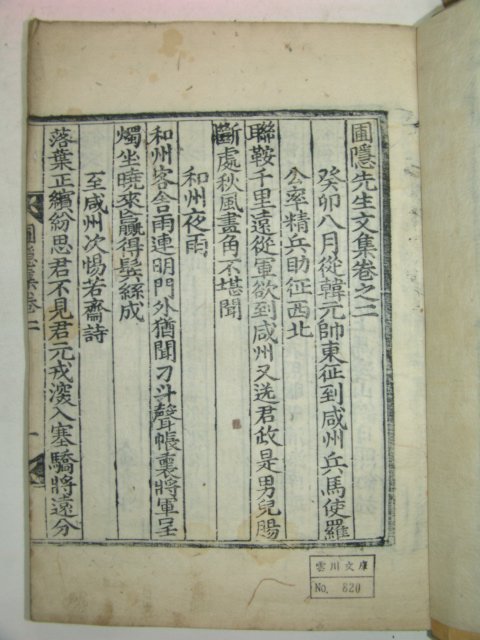 圃隱先生文集卷之二
癸卯八月從韓元帥東征到咸州兵馬使羅
公率精兵助征西北
聯鞍千里遠從軍欲到咸州又送君政是男兒腸
斷處秋風畫角不堪聞
和州夜雨
和州客舍雨連明門外猶聞刁斗聲帳裏將軍呈
燭坐曉來贏得鬂絲成
至咸州次惕若齋詩
落葉正繽紛思君不見君元戎深入塞驕將遠分
圃隱集卷二
雲川文庫
No. 820